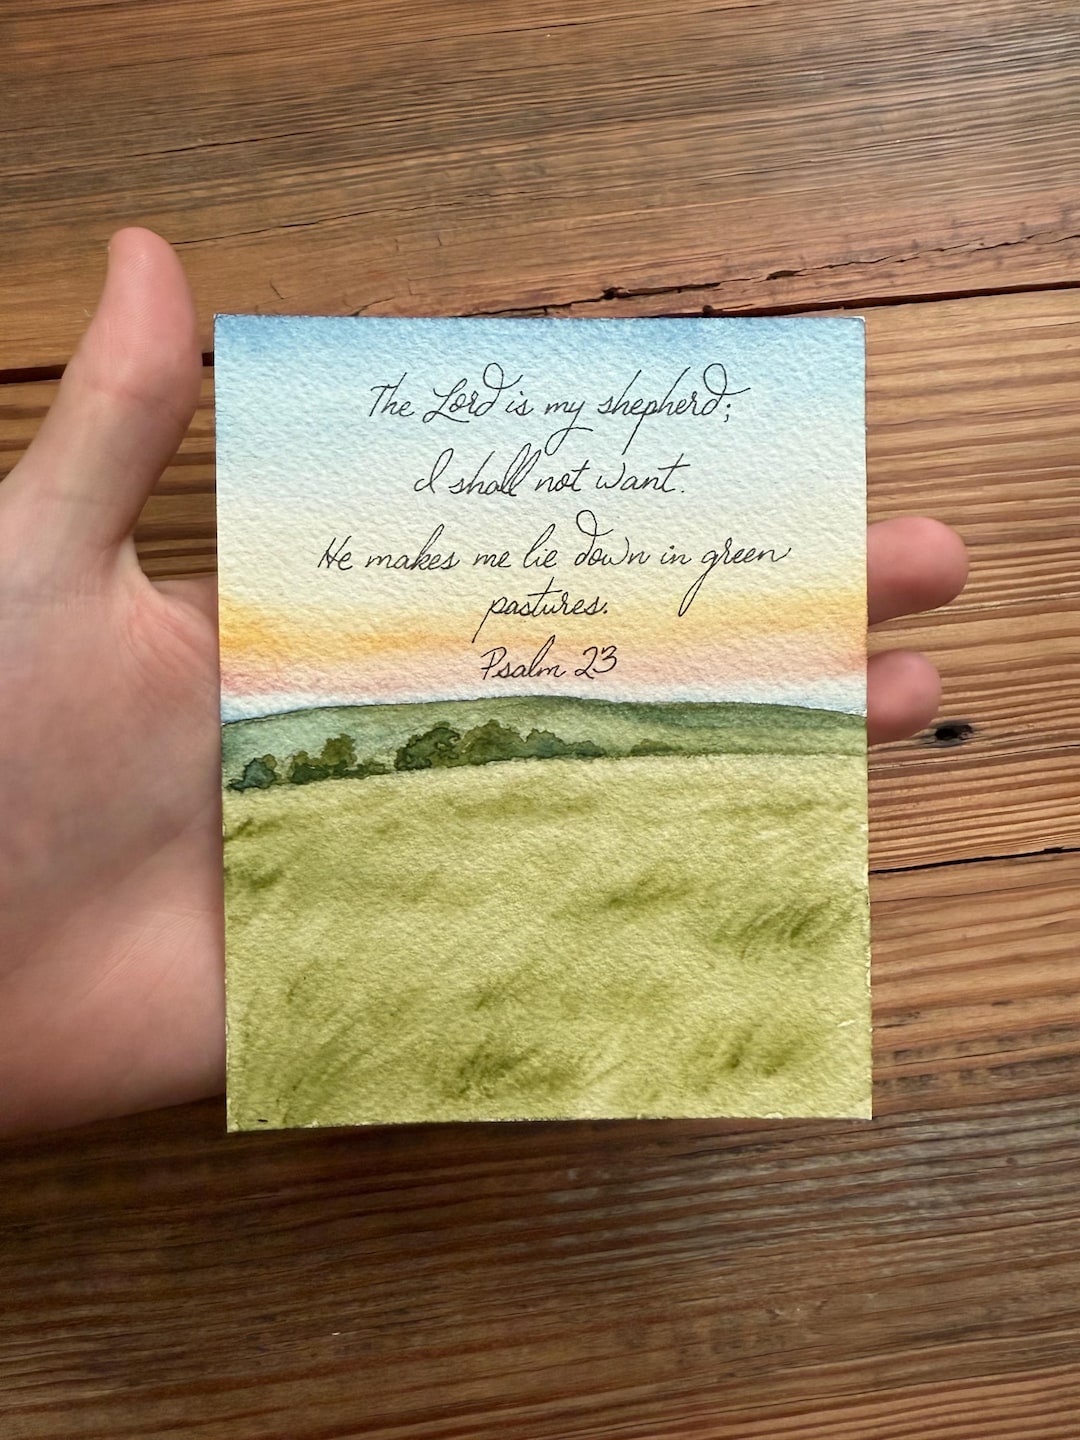 The Lord is my shepherd;
I shall not want.
He makes me lie down in green
pastures.
Psalm 23